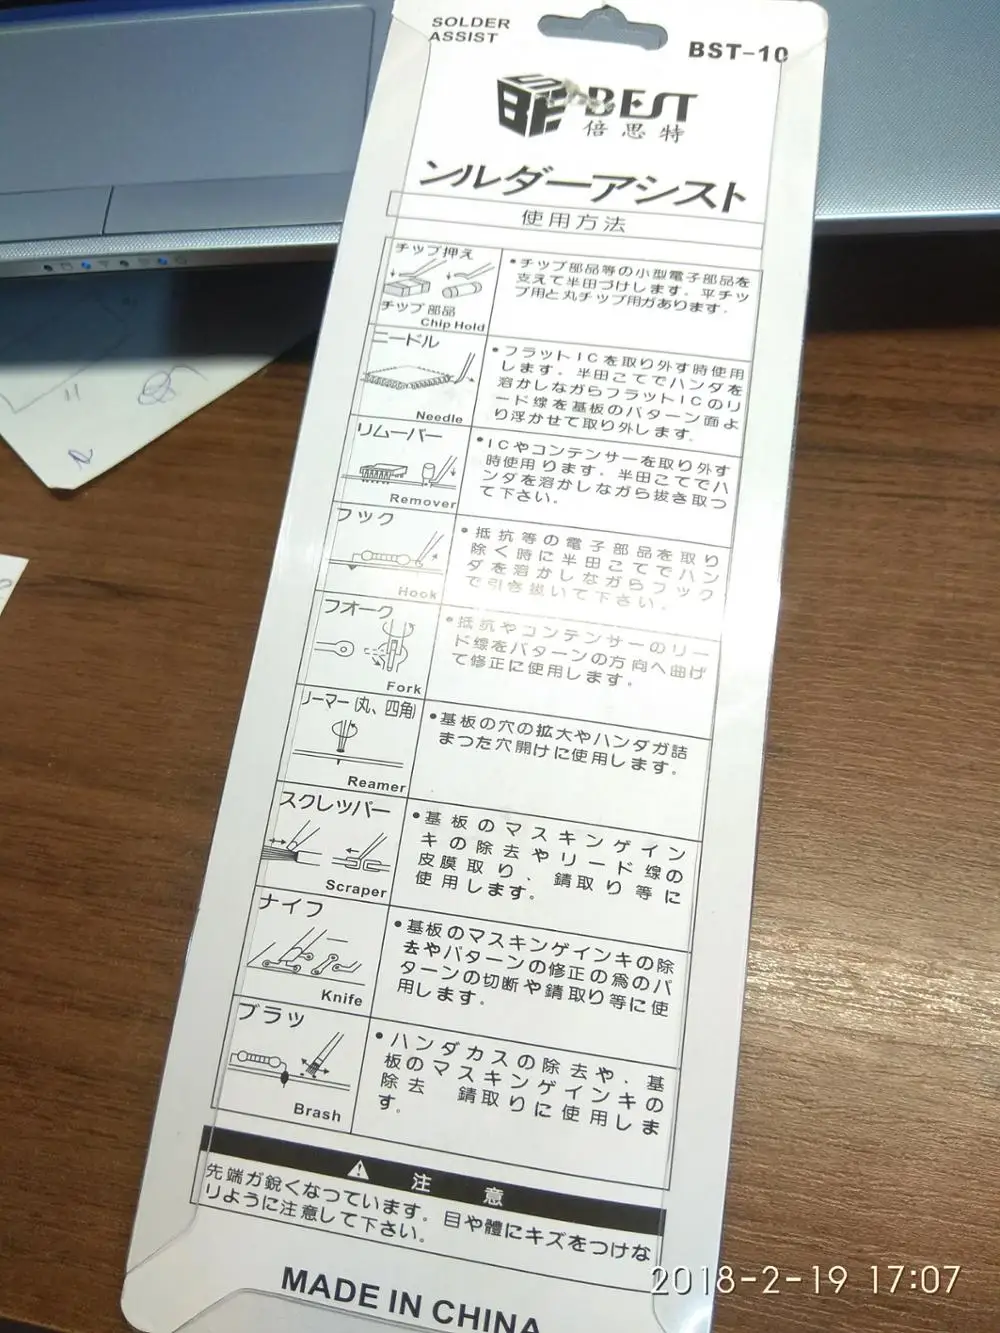 SOLDER
ASSIST
BST-10
BEST
倍思特
ンルダーアシスト
使用方法
チップ押え
チップ部品
Chip Hold
•チップ部品等の小型電子部品を
支えて半田づけします．平チッ
プ用と丸チップ用があります．
ニードル
Needle
•フラットICを取り外す時使用
します．半田こてでハンダを
溶かしながらフラットICのリ
ード線を基板のパターン面よ
り浮かせて取り外します．
リムーバー
Remover
•ICやコンテンサーを取り外す
時使用ります．半田こてでハ
ンダを溶かしながら抜き取っ
て下さい．
フック
Hook
•抵抗等の電子部品を取り
除く時に半田こてでハン
ダを溶かしながらフック
で引き抜いて下さい．
フオーク
Fork
•抵抗やコンテンサーのリー
ド線をパターンの方向へ曲げ
て修正に使用します．
リーマー(丸、四角)
Reamer
•基板の穴の拡大やハンダガ詰
まつた穴開けに使用します．
スクレッパー
Scraper
•基板のマスキンゲイン
キの除去やリード線の
皮膜取り、錆取り等に
使用します。
ナイフ
Knife
•基板のマスキンゲインキの除
去やパターンの修正の為のパ
ターンの切断や錆取り等に使
用します．
ブラッ
Brash
•ハンダカスの除去や．基
板のマスキンゲインキの
除去 錆取りに使用しま
す．
注意
先端が鋭くなつています．目や體にキズをつけな
りように注意して下さい．
MADE IN CHINA
2018-2-19 17:07